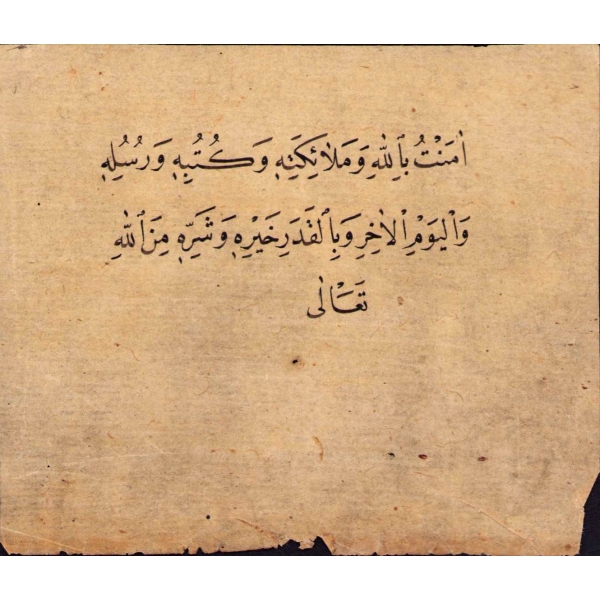 اٰمَنْتُ بِاللّٰهِ وَمَلٰائِكَتِهٖ وَكُتُبِهٖ وَرُسُلِهٖ
وَالْيَوْمِ الْاٰخِرِ وَبِالْقَدَرِ خَيْرِهٖ وَشَرِّهٖ مِنَ اللّٰهِ
تَعَالٰى